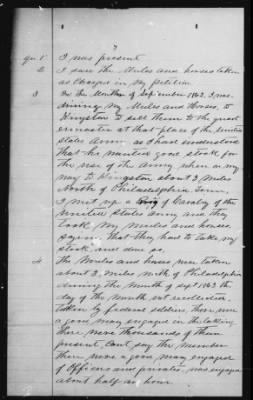 7
qu 1 I was present
2 I saw the Mules and horses taken
as Charged in my petition
3 In the Month of September 1863, I was
driving my Mules and Horses, to
Kingston to sell them to the quart
ermaster at that place of the United
States Army as I had understood
that he wanted good stock for
the use of the Army when on my
way to Kingston about 2 miles
North of Philadelphia Tenn.
I met up a of Cavalry of the
United States Army and they
took my Mules and horses
sayin. That they had to take my
stock and did so
4 The Mules and horses were taken
about 2 miles north of Philadelphia
during the month of Sept 1863 the
day of the Month not recollection.
Taken by federal soldiers there were
a good many engaged in the takeing
there were thousands of them
present, Cant say the number
there were a good many engaged
of Officers and privates was engaged
about half an hour